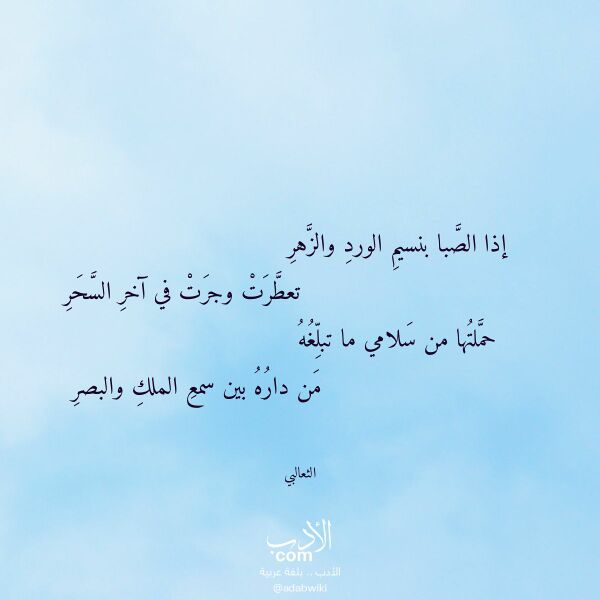 إذا الصَّبا بنسيمِ الوردِ والزَّهرِ
تعطَّرَتْ وجرَتْ في آخرِ السَّحَرِ
حمَّلتُها من سَلامي ما تبلِّغُهُ
مَن دارُهُ بين سمعِ الملكِ والبصرِ
الثعالبي
الأدب
.com
الأدب .. بلغة عربية
@adabwiki